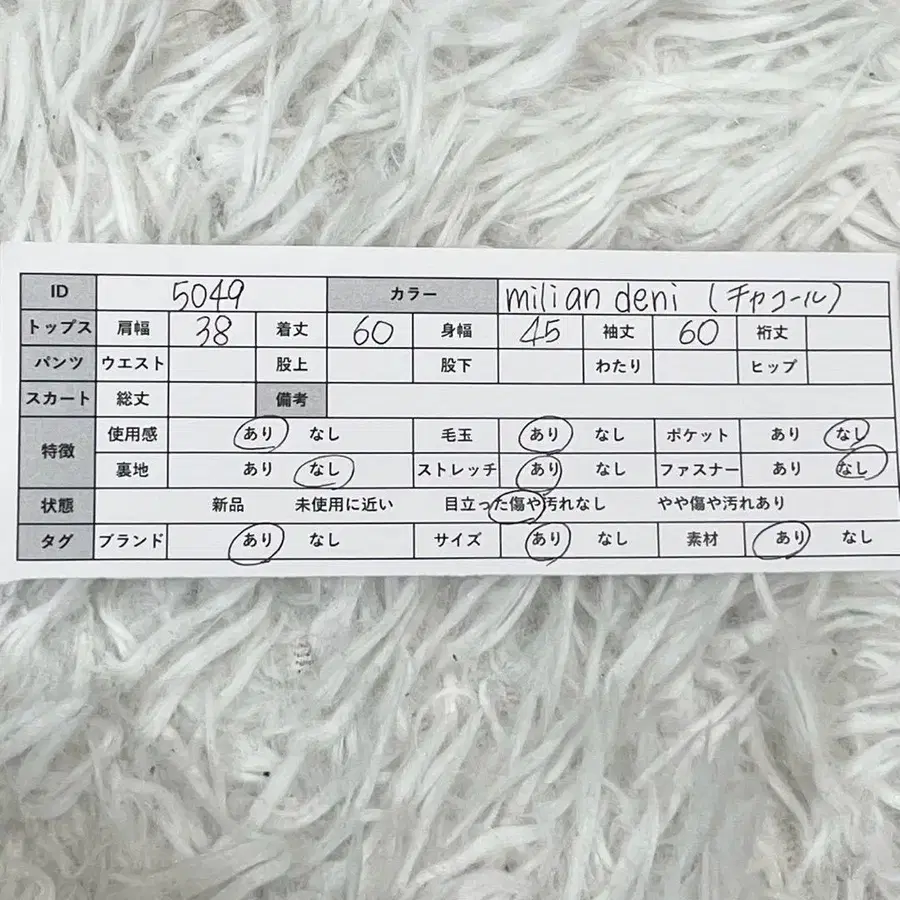 ID 5049 カラー milian deni (チャコール)
トップス 肩幅 38 着丈 60 身幅 45 袖丈 60 裄丈
パンツ ウエスト 股上 股下 わたり ヒップ
スカート 総丈 備考
特徴 使用感 あり なし 毛玉 あり なし ポケット あり なし
裏地 あり なし ストレッチ あり なし ファスナー あり なし
状態 新品 未使用に近い 目立った傷や汚れなし やや傷や汚れあり
タグ ブランド あり なし サイズ あり なし 素材 あり なし